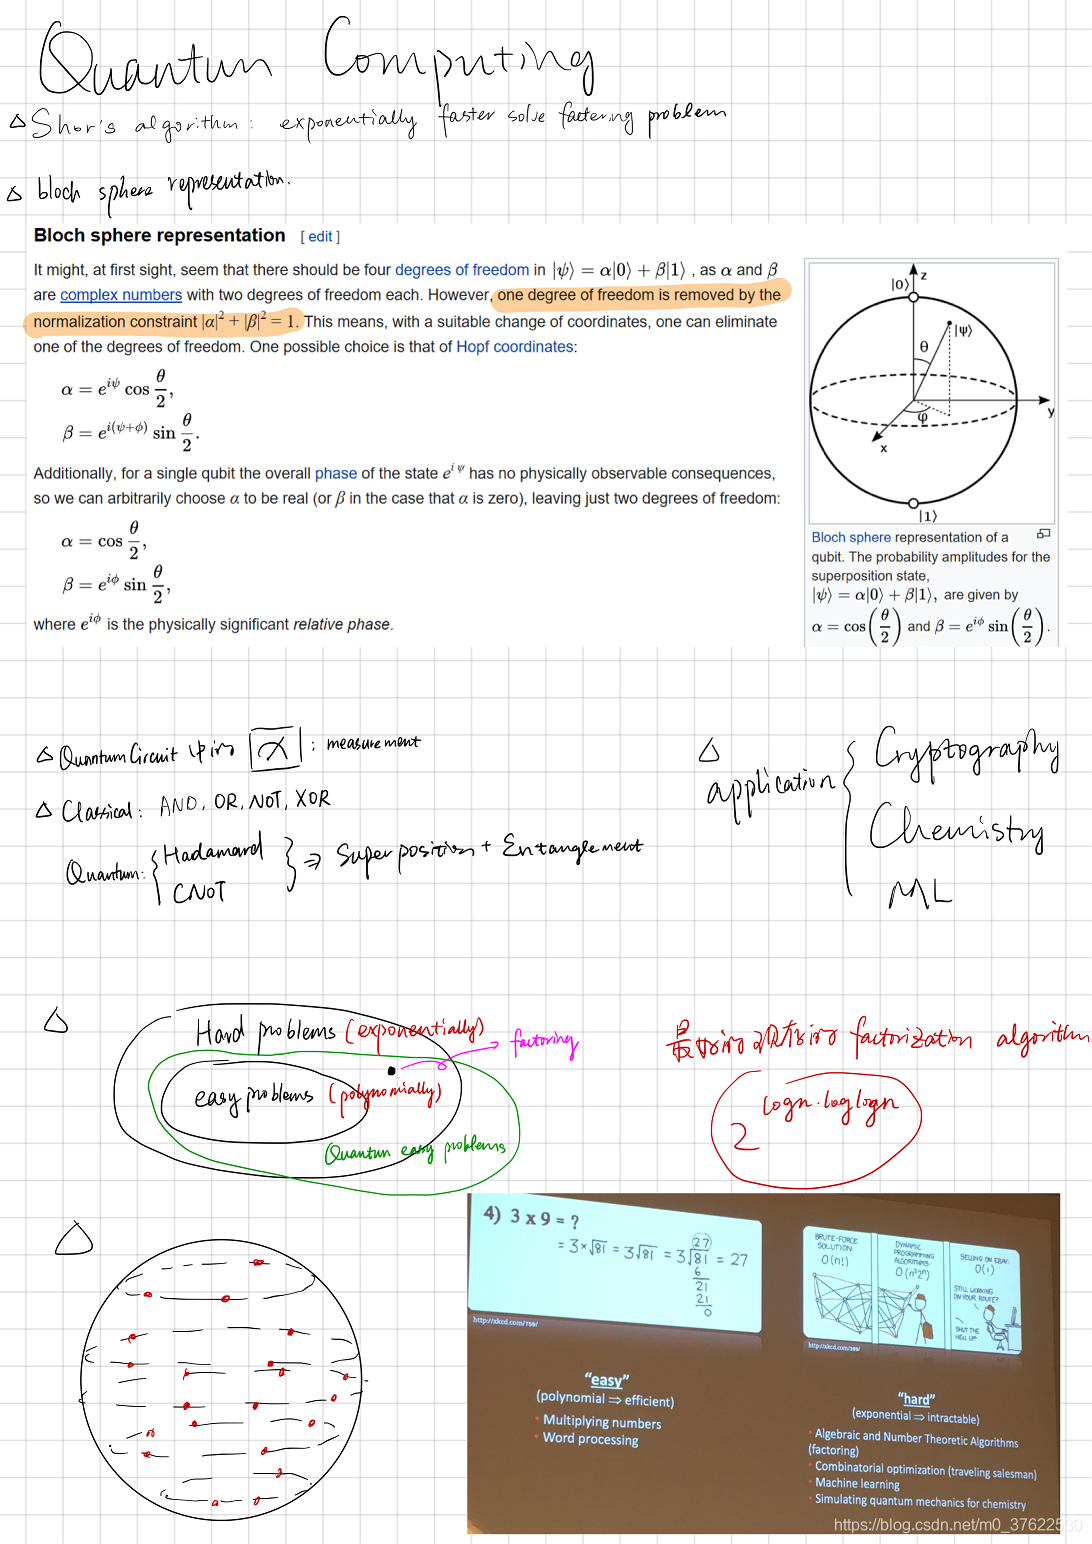 Quantum Computing
Δ Shor's algorithm: exponentially faster solve factering problem
Δ bloch sphere representation.
Bloch sphere representation [ edit ]
It might, at first sight, seem that there should be four degrees of freedom in |ψ⟩ = α|0⟩ + β|1⟩ , as α and β
are complex numbers with two degrees of freedom each. However, one degree of freedom is removed by the
normalization constraint |α|² + |β|² = 1. This means, with a suitable change of coordinates, one can eliminate
one of the degrees of freedom. One possible choice is that of Hopf coordinates:
α = e^{iψ} cos θ/2,
β = e^{i(ψ+ϕ)} sin θ/2.
Additionally, for a single qubit the overall phase of the state e^{iψ} has no physically observable consequences,
so we can arbitrarily choose α to be real (or β in the case that α is zero), leaving just two degrees of freedom:
α = cos θ/2,
β = e^{iϕ} sin θ/2,
where e^{iϕ} is the physically significant relative phase.
|0⟩ z
|ψ⟩
θ
φ
y
x
|1⟩
Bloch sphere representation of a
qubit. The probability amplitudes for the
superposition state,
|ψ⟩ = α|0⟩ + β|1⟩, are given by
α = cos(θ/2) and β = e^{iϕ} sin(θ/2).
Δ Quantum Circuit : measurement
Δ Classical: AND, OR, NOT, XOR
Quantum: { Hadamard
CNOT } ⇒ Superposition + Entanglement
Δ
application { Cryptography
Chemistry
ML
Δ
Hard problems (exponentially)
factoring
easy problems (polynomially)
Quantum easy problems
factorization algorithm
2^{logn·loglogn}
Δ
4) 3 x 9 = ?
= 3×√81 = 3√81 = 3√81 = 27
27
6
21
21
0
http://xkcd.com/759/
"easy"
(polynomial ⇒ efficient)
• Multiplying numbers
• Word processing
BRUTE-FORCE
SOLUTION:
O(n!)
DYNAMIC
PROGRAMMING
ALGORITHMS:
O(n²2ⁿ)
SELLING ON EBAY:
O(1)
STILL WORKING
ON YOUR ROUTE?
SHUT THE
HELL UP.
"hard"
(exponential ⇒ intractable)
• Algebraic and Number Theoretic Algorithms
(factoring)
• Combinatorial optimization (traveling salesman)
• Machine learning
• Simulating quantum mechanics for chemistry